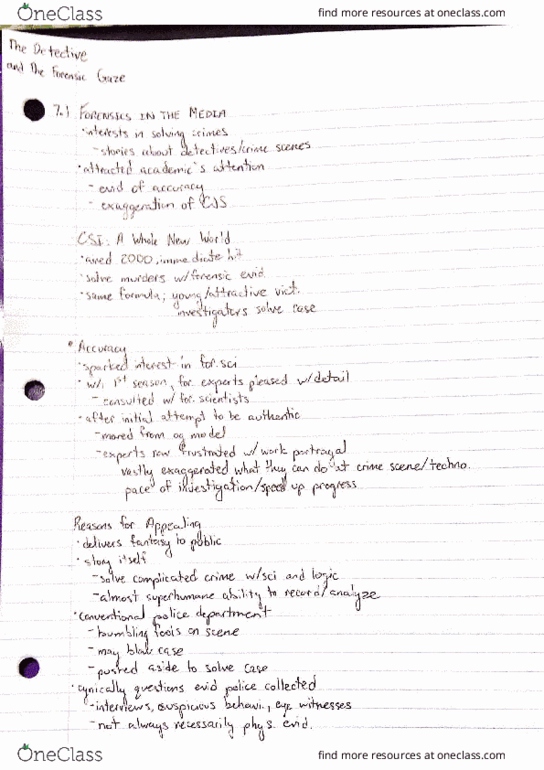 OneClass
find more resources at oneclass.com
The Detective
and The Forensic Gaze
7.1 FORENSICS IN THE MEDIA
· interests in solving crimes
- stories about detectives/crime scenes
· attracted academic's attention
- end of accuracy
- exaggeration of CJS
CSI: A Whole New World
· aired 2000, immediate hit
· solve murders w/forensic evid.
· same formula; young/attractive vict.
investigators solve case
* Accuracy
· sparked interest in for. sci
· w/ 1st season, for. experts pleased w/detail
- consulted w/ for. scientists
· after initial attempt to be authentic
- moved from og model
- experts now frustrated w/ work portrayal
vastly exaggerated what they can do at crime scene/techno.
pace of investigation/speed up progress
Reasons for Appealing
· delivers fantasy to public
· story itself
- solve complicated crime w/sci and logic
- almost superhumane ability to record/analyze
· conventional police department
- bumbling fools on scene
- may blow case
- pushed aside to solve case
· cynically questions evid police collected
- interviews, suspicious behavi., eye witnesses
- not always necessarily phys. evid.
OneClass
find more resources at oneclass.com